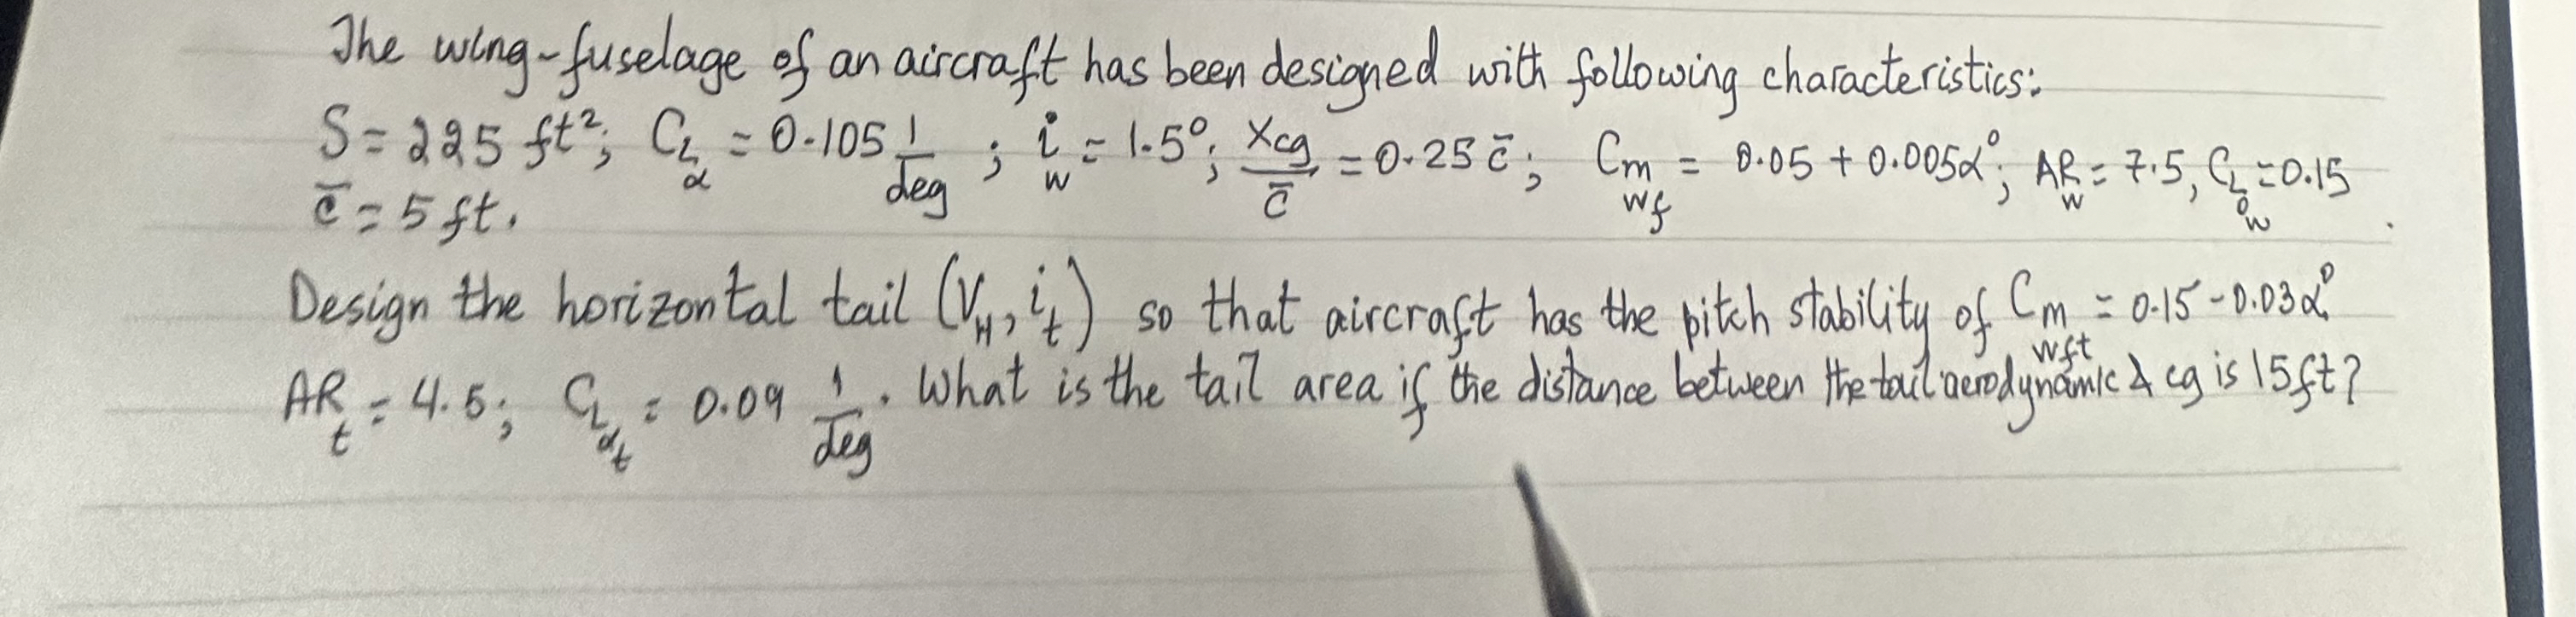 The wing-fuselage of an aircraft has been designed with following characteristics:
S = 225 ft²; C_Lα = 0.105 1/deg ; i_w = 1.5°; Xcg/c̄ = 0.25 c̄; C_m_wf = 0.05 + 0.005α°; AR_w = 7.5, C_L0_w = 0.15
c̄ = 5 ft.
Design the horizontal tail (V_H, i_t) so that aircraft has the pitch stability of C_m_wft = 0.15 - 0.03α°
AR_t = 4.5; C_Lα_t = 0.09 1/deg. What is the tail area if the distance between the tail aerodynamic & cg is 15ft?